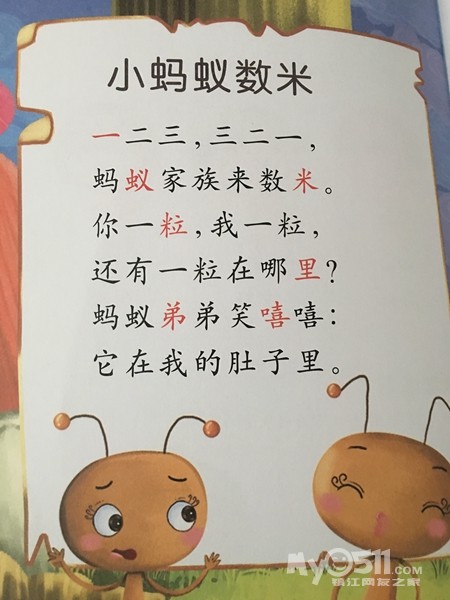 小蚂蚁数米
一二三,三二一,
蚂蚁家族来数米。
你一粒,我一粒,
还有一粒在哪里?
蚂蚁弟弟笑嘻嘻:
它在我的肚子里。
My0511.com
镇江网友之家